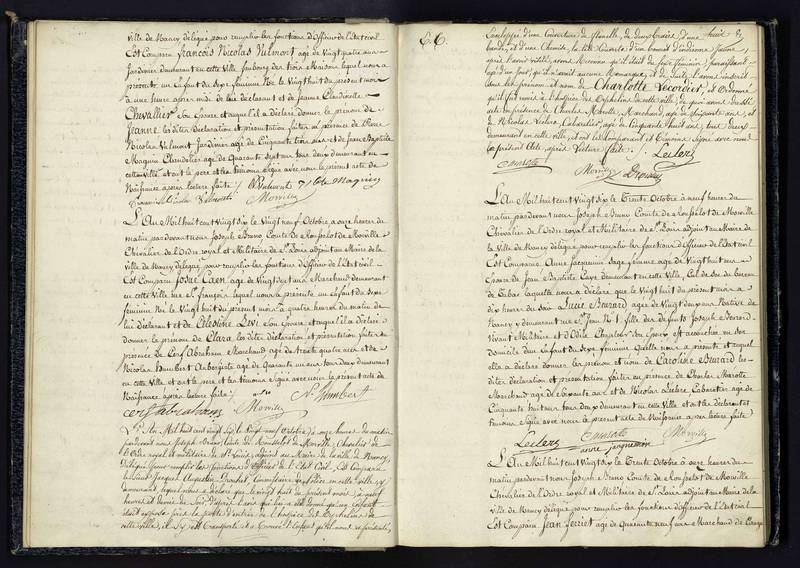 ville de Nancy délégué pour remplir les fonctions d'Officier de l'Etat civil
Est Comparu François Nicolas Vulmont agé de Vingt quatre ans
Jardinier demeurant en cette Ville faubourg des trois Maisons lequel nous a
présenté un Enfant du sexe féminin Né le Vingt huit du présent mois
à une heure après midi de lui déclarant et de Jeanne Claudinette
Chevallier son Epouse et auquel il a déclaré donner le prénom de
Jeanne les dites déclaration et présentation faites en présence de Pierre
Nicolas Vulmont Jardinier agé de Cinquante trois ans et de Jean Baptiste
Maquin Chandelier agé de Quarante sept ans tous deux demeurant en
cette ville et ont le père et les témoins signé avec nous le présent acte de
Naissance après lecture faite
Morville
L'An Mil huit cent Vingt six le Vingt neuf Octobre à onze heures du
matin pardevant nous Joseph Bruno Comte de Rousselot de Morville
Chevalier de l'Ordre royal et Militaire de St Louis adjoint au Maire de la
ville de Nancy délégué pour remplir les fonctions d'Officier de l'Etat civil
Est Comparu Josué Caen agé de Vingt sept ans Marchand demeurant
en cette Ville rue St François lequel nous a présenté un Enfant du sexe
féminin Né le Vingt huit du présent mois à quatre heures du matin de
lui déclarant et de Célestine Levi son Epouse et auquel il a déclaré
donner le prénom de Clara les dites déclaration et présentation faites en
présence de Cerf Abraham Marchand agé de trente quatre ans et de
Nicolas Humbert Aubergiste agé de Quarante un ans tous deux demeurant
en cette Ville et ont le père et les témoins signé avec nous le présent acte de
Naissance après lecture faite
N. Humbert
cerf abraham Morville
L'An Mil huit cent vingt six le vingt neuf Octobre à onze heures du matin
pardevant nous Joseph Bruno Comte de Rousselot de Morville Chevalier de
l'Ordre royal et militaire de St Louis, adjoint au Maire de la ville de Nancy,
délégué pour remplir les fonctions d'Officier de l'Etat Civil, Est Comparu
le Sieur Jacques Augustin Drouhet, Commissaire de Police en cette ville, y
demeurant, lequel nous a déclaré que le vingt huit du présent mois, à neuf
heures
était exposé près la porte d'entrée de l'hospice des Orphelins de
cette ville, il s'y est transporté et a trouvé l'enfant qu'il nous a présenté,
66.
enveloppé d'une couverture de flanelle, de deux
bande, et d'une Chemise, la tête couverte d'un bonnet d'indienne jaune,
après l'avoir visité, avons reconnu qu'il était du sexe féminin, paraissant
agé d'un jour, qu'il n'avait aucune Remarque, et de suite l'avons inscrit
sous les prénom et nom de Charlotte Lecorcier, et Ordonné
qu'il fut remis à l'hospice des Orphelins de cette ville, de quoi avons dressé
acte en présence de Charles Marotte, Marchand, agé de soixante ans, et
de Nicolas Leclerc, Cabaretier, agé de Cinquante huit ans, tous deux
demeurant en cette ville, et ont les comparant et témoins signé avec nous
le présent Acte, après Lecture faite
Leclerc
Morville
L'An Mil huit cent Vingt six le Trente Octobre à neuf heures du
matin pardevant nous Joseph Bruno Comte de Rousselot de Morville
Chevalier de l'Ordre royal et Militaire de St Louis adjoint au Maire de
la Ville de Nancy délégué pour remplir les fonctions d'Officier de l'Etat civil
Est Comparue Anne Jacquemin Sage femme agée de Vingt huit ans
Epouse de Jean Baptiste Caye demeurant en cette Ville
laquelle nous a déclaré que le Vingt huit du présent mois à
dix heures du soir Lucie Bourard agée de Vingt deux ans Native de
Nancy y demeurant
est accouchée en son
domicile d'un Enfant du sexe féminin qu'elle nous a présenté et auquel
elle a déclaré donner les prénom et nom de Caroline Bourard les
dites déclaration et présentation faites en présence de Charles Marotte
Marchand agé de soixante ans et de Nicolas Leclerc Cabaretier agé de
Cinquante huit ans tous deux demeurant en cette Ville et ont les déclarant et
témoins signé avec nous le présent acte de Naissance après lecture faite
Leclerc Morville
anne jacquemin
L'An Mil huit cent Vingt six le Trente Octobre à onze heures du
matin pardevant nous Joseph Bruno Comte de Rousselot de Morville
Chevalier de l'Ordre royal et Militaire de St Louis adjoint au Maire de la
ville de Nancy délégué pour remplir les fonctions d'Officier de l'Etat civil
Est Comparu Jean Ferriet agé de Quarante neuf ans Marchand de